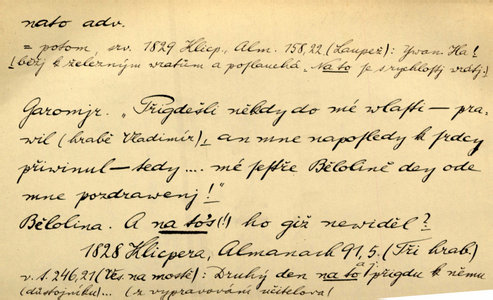 nato adv.
= potom, srv. 1829 Klicp., Alm. 158,22 (Laupež): Ywan. Ha!
(běžj k železným wratům a poslauchá) Na to se s rychlostj wrátj.
Garomjr. „Přigdešli někdy do mé wlasti — pra-
wil (hrabě Vladimír), an mne naposledy k srdcy
přiwinul — tedy .... mé sestře Bělolině dey ode
mne pozdrawenj!"
Bělolina. A na tos(!) ho giž newiděl?
1828 Klicpera, Almanach 91,5. (Tři hrab.)
v. t. 246,21 (Ves. na mostě): Druhý den na to přigdu k němu
(důstojníku)... (z vypravování učitelova)